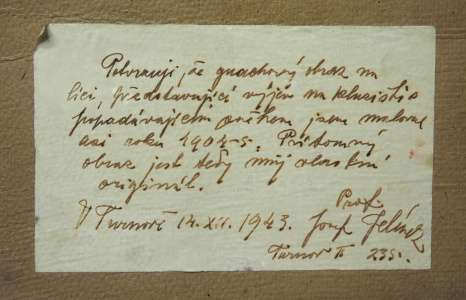 Potvrzuji, že guachový obraz na
líci, představující výjev na kluzišti s
popadávajícím sněhem jsem maloval
asi roku 1904-5. Přítomný
obraz jest tedy můj vlastní
originál.
V Turnově 14.XII.1943. Prof.
Josef Jelínek
Turnov II 235.